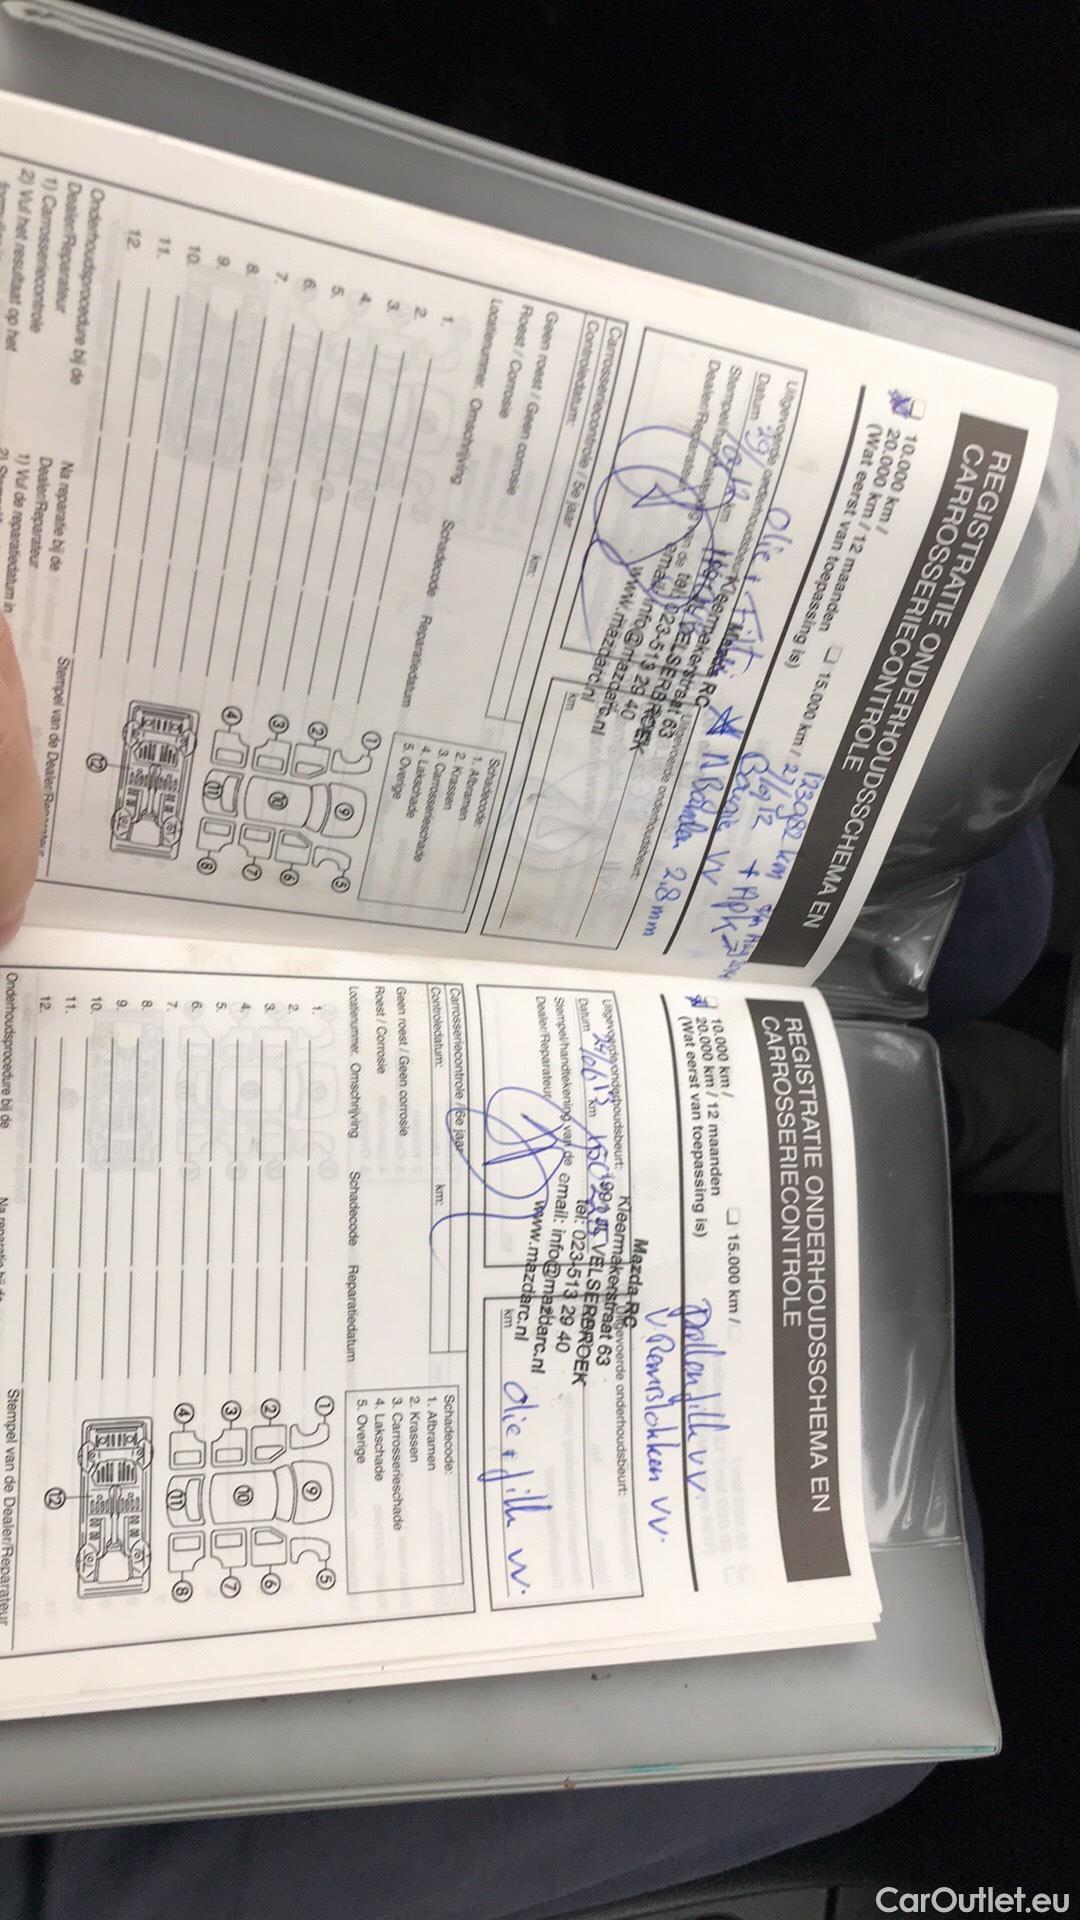 REGISTRATIE ONDERHOUDSSCHEMA EN
CARROSSERIECONTROLE
10.000 km /
20.000 km / 12 maanden
15.000 km /
(Wat eerst van toepassing is)
123982 km
Olie + Filter
Uitgevoerde onderhoudsbeurt:
Datum
km
Stempel/handtekening van de
Dealer/Reparateur
Mazda RC
Kleermakerstraat 63
VELSERBROEK
tel: 023-513 29 40
email: info@mazdarc.nl
www.mazdarc.nl
Uitgevoerde onderhoudsbeurt:
2.8 mm
km
Carrosseriecontrole / 5e jaar
Controledatum:
km:
Geen roest / Geen corrosie
Roest / Corrosie
Locatienummer. Omschrijving Schadecode Reparatiedatum
1.
2.
3.
4.
5.
6.
7.
8.
9.
10.
11.
12.
Schadecode:
1. Afbramen
2. Krassen
3. Carrosserieschade
4. Lakschade
5. Overige
1 2 3 4 5 6 7 8 9 10 11 12
Onderhoudsprocedure bij de
Dealer/Reparateur
1) Carrosseriecontrole
2) Vul het resultaat op het
Na reparatie bij de
Dealer/Reparateur
1) Vul de reparatiedatum in
Stempel van de Dealer/Reparateur
REGISTRATIE ONDERHOUDSSCHEMA EN
CARROSSERIECONTROLE
10.000 km /
20.000 km / 12 maanden
15.000 km /
(Wat eerst van toepassing is)
Pollenfilter vv.
Remblokken vv.
Uitgevoerde onderhoudsbeurt:
Datum
24/06/13
km
Stempel/handtekening van de
Dealer/Reparateur
Mazda RC
Kleermakerstraat 63
1991 VELSERBROEK
tel: 023-513 29 40
email: info@mazdarc.nl
www.mazdarc.nl
Uitgevoerde onderhoudsbeurt:
km
olie + filter vv.
Carrosseriecontrole / 6e jaar
Controledatum:
km:
Geen roest / Geen corrosie
Roest / Corrosie
Locatienummer. Omschrijving Schadecode Reparatiedatum
1.
2.
3.
4.
5.
6.
7.
8.
9.
10.
11.
12.
Schadecode:
1. Afbramen
2. Krassen
3. Carrosserieschade
4. Lakschade
5. Overige
1 2 3 4 5 6 7 8 9 10 11 12
Onderhoudsprocedure bij de
Na reparatie bij de
Stempel van de Dealer/Reparateur
CarOutlet.eu